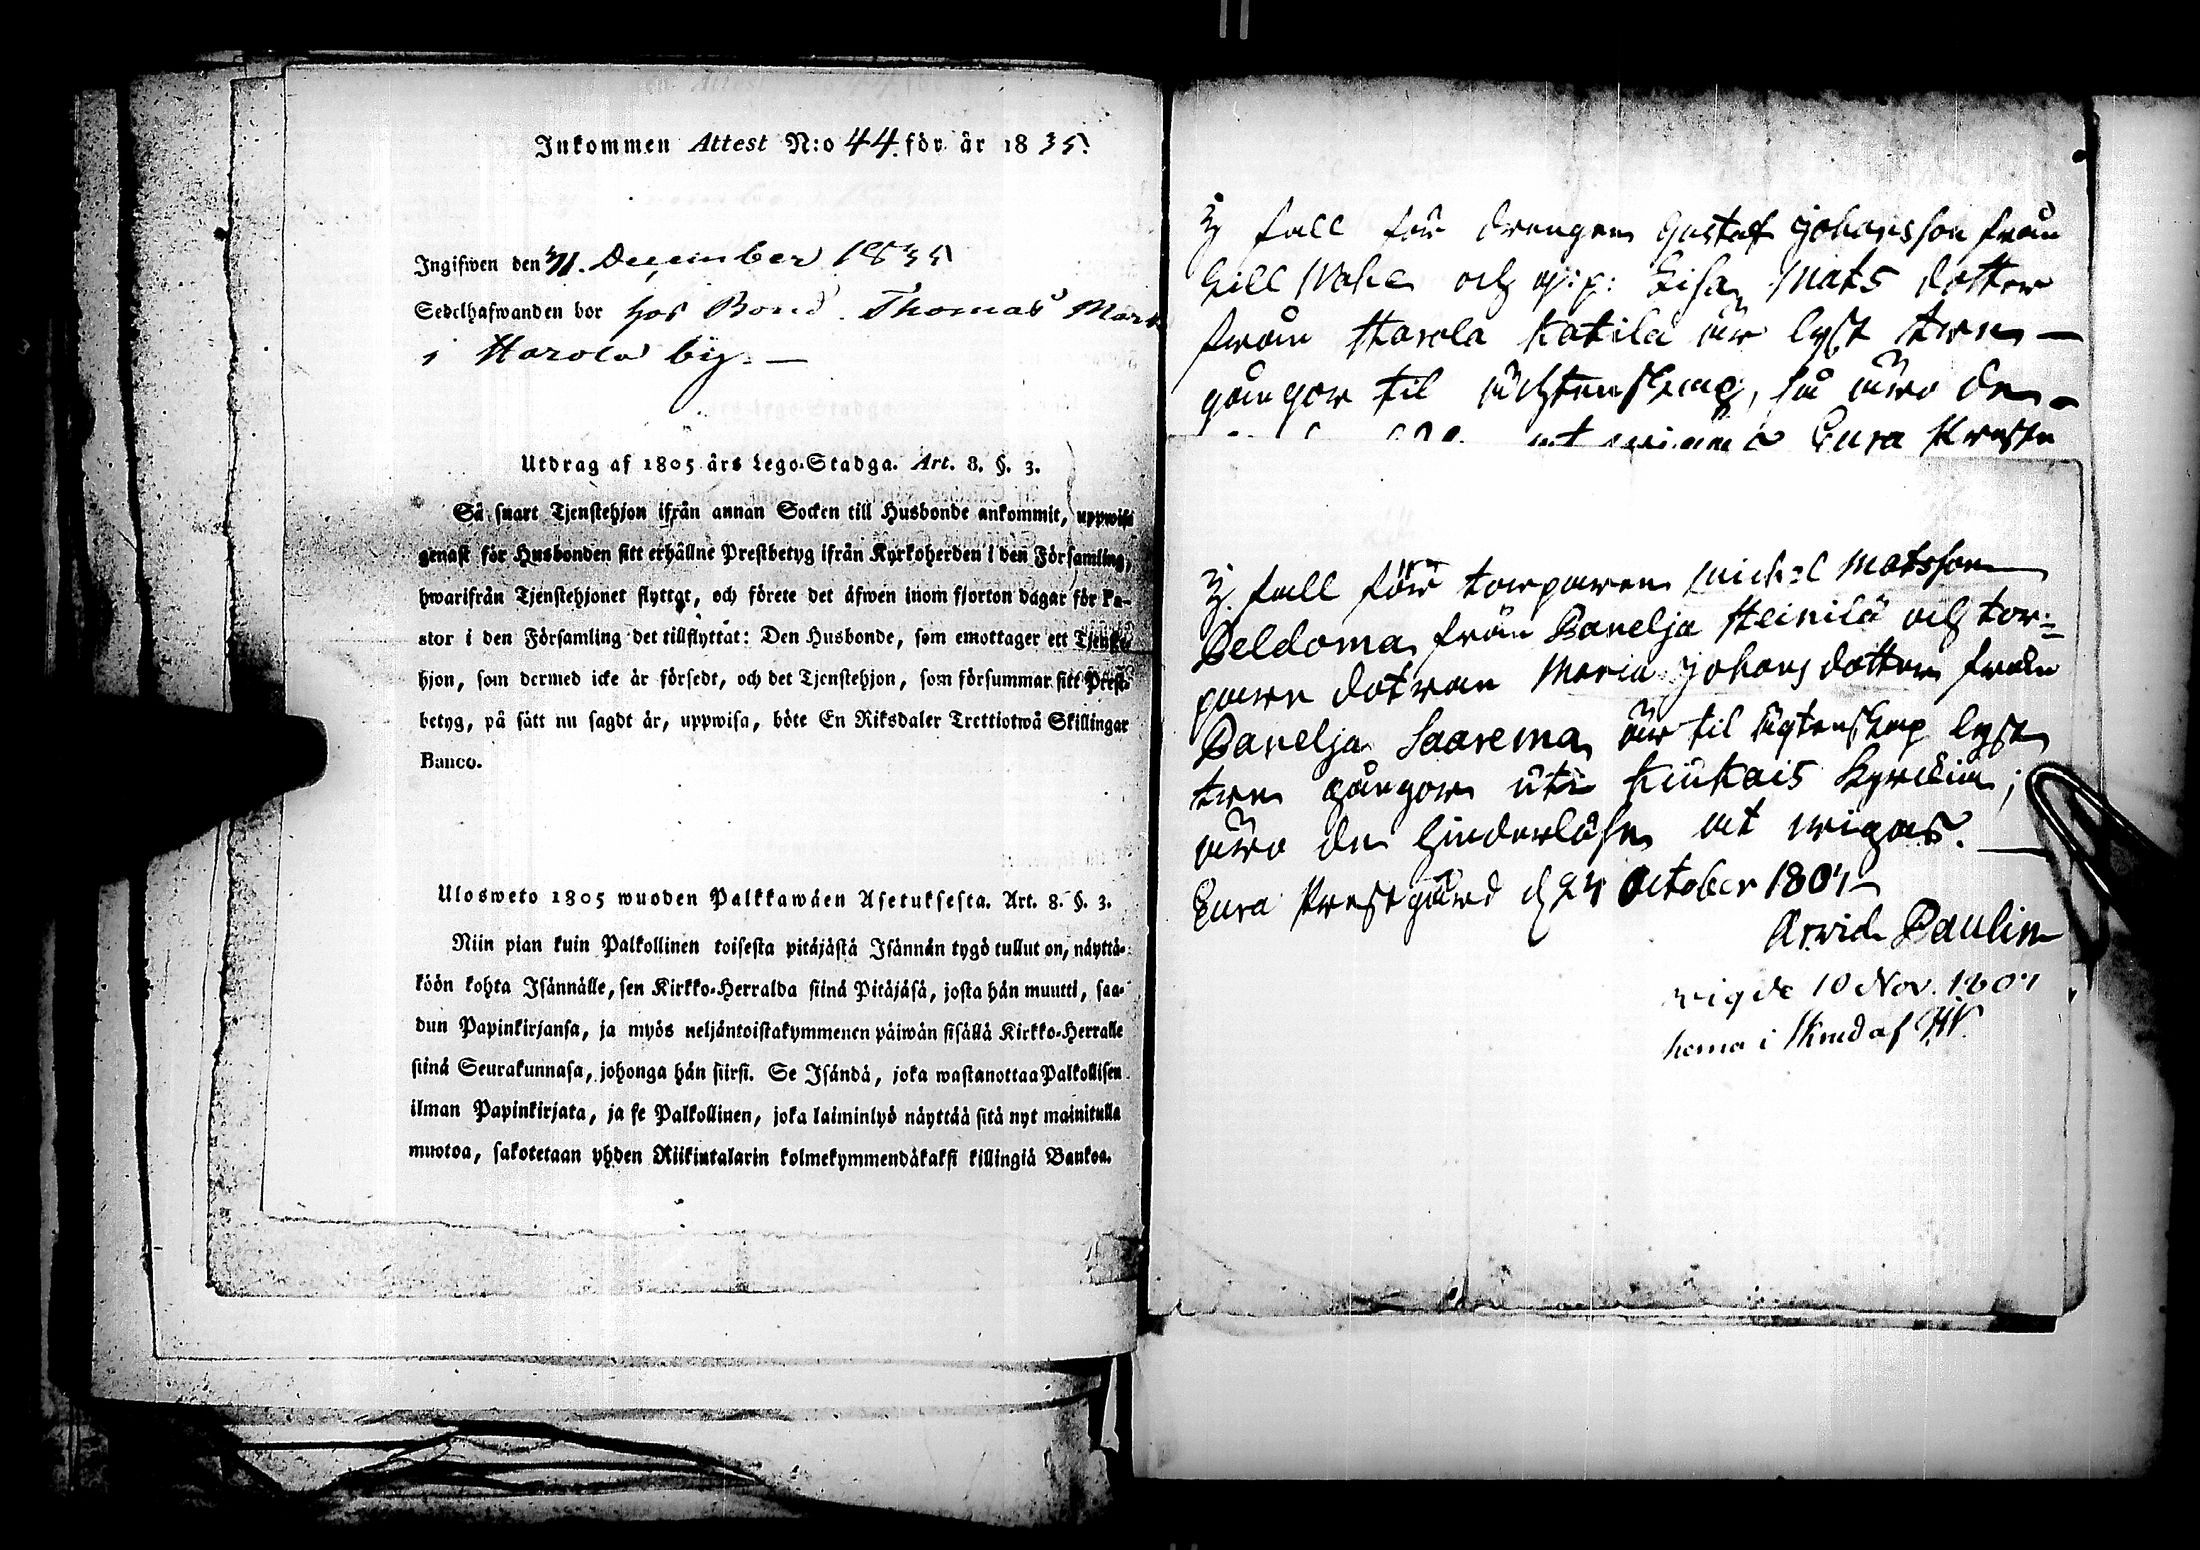 Inkommen Attest N:o 44. för år 1835.
Ingifwen den 31. December 1835
Sedelhafwanden bor hos Bond. Thomas
i Harola by. —
Utdrag af 1805 års Lego-Stadga. Art. 8. §. 3.
Så snart Tjenstehjon ifrån annan Socken till Husbonde ankommit, uppwise
genast för Husbonden sitt erhållne Prestbetyg ifrån Kyrkoherden i den Församling,
hwarifrån Tjenstehjonet flyttat, och förete det äfwen inom fjorton dagar för Pa-
stor i den Församling det tillflyttat: Den Husbonde, som emottager ett Tjenste-
hjon, som dermed icke är försedt, och det Tjenstehjon, som försummar sitt Prest-
betyg, på sätt nu sagdt är, uppwisa, böte En Riksdaler Trettiotwå Skillingar
Banco.
Ulosweto 1805 wuoden Palkkawäen Asetuksesta. Art. 8. §. 3.
Niin pian kuin Palkollinen toisesta pitäjästä Isännän tygö tullut on, näyttä-
köön kohta Isännälle, sen Kirkko-Herralda siinä Pitäjäsä, josta hän muutti, saa-
dun Papinkirjansa, ja myös neljäntoistakymmenen päiwän sisällä Kirkko-Herralle
siinä Seurakunnasa, johonga hän siirsi. Se Isändä, joka wastanottaa Palkollisen
ilman Papinkirjata, ja se Palkollinen, joka laiminlyö näyttää sitä nyt mainitulla
muotoa, sakotetaan yhden Riikintalarin kolmekymmendäkaksi killingiä Bankoa.
fall för drengen Gustaf Johansson från
och Lisa Mats dotter
från Harola Katila är lyst tre —
gångor til ächtenskap, så äro de
Eura
fall för torparen Michel Matsson
Peldoma från Panelja Heinilä och tor=
pare dotran Maria Johans dotter från
Panelja Saarema är til ägtenskap lyst
tre gångor uti Kiukais Kyrckia;
äro de hinderlöse at wigas. —
Eura Prestgård d 24 October 1807
Arvid Paulin
wigde 10 Nov. 1807
hema i af